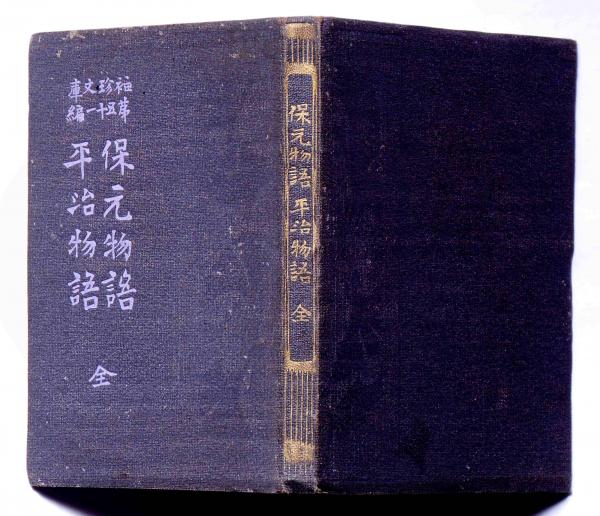 袖珍文庫
第五十一編
保元物語
平治物語
全
保元物語 平治物語 全